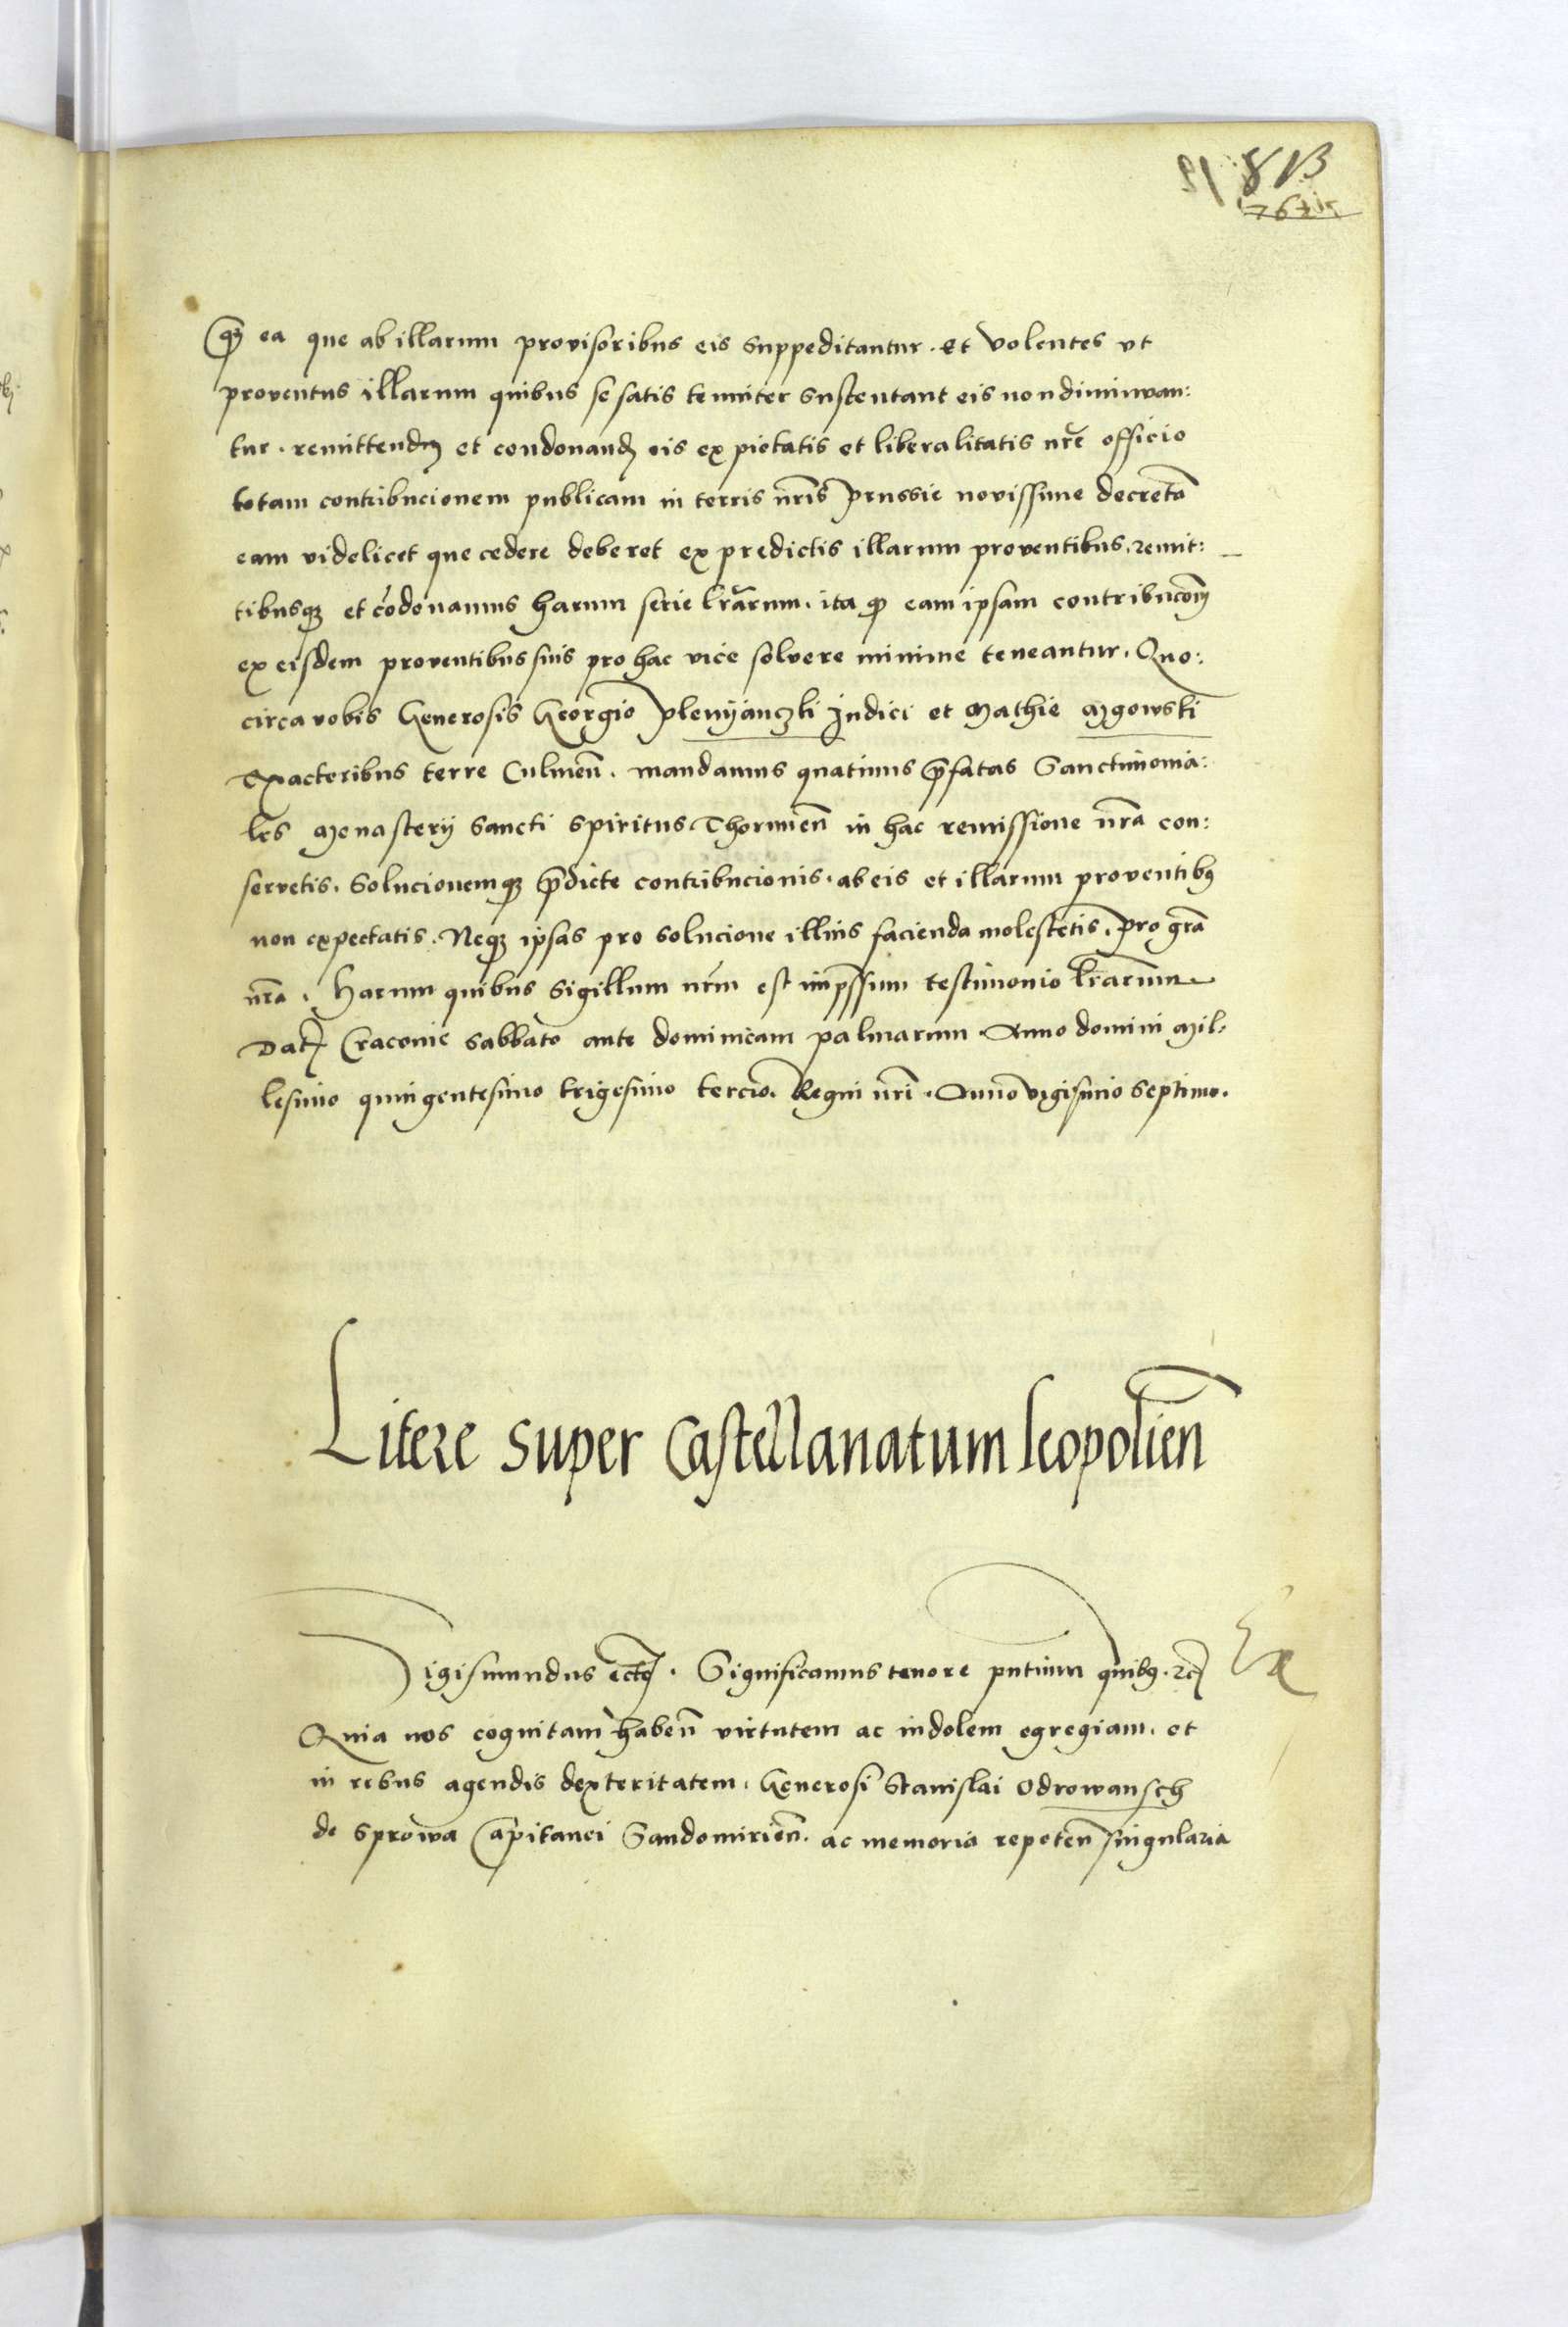 qʒ ea que ab illarum provisoribus eis suppeditantur. et volentes vt
proventus illarum quibus se satis tenuiter sustentant eis non diminuan:
tur. remittendam et condonand eis ex pietatis et liberalitatis nr̃e officio
totam contribucionem publicam in terris nr̃is prussie novissime decretã
eam videlicet que cedere deberet ex predictis illarum proventibus. remit:
timusqʒ et cõdonamus harum serie lr̃arum. ita qꝫ eam ipsam contribucõem
ex eisdem proventibus suis pro hac vice solvere minime teneantur. Quo:
circa vobis Generosis Georgio plemijanczki Iudici et Mathie Mgowski
Exactoribus terre Culmeñ. mandamus quatinus p̃fatas Sanctimonia:
les Monasterij sancti spiritus Thorunieñ in hac remissione nr̃a con:
servetis. Solucionemqʒ p̃dicte contribucionis. ab eis et illarum proventibꝰ
non expectatis. Neqʒ ipsas pro solucione illius facienda molestetis. pro gr̃a
nr̃a. Harum quibus sigillum nr̃m est imp̃ssum testimonio lr̃arum
Dat Cracovie sabbato ante dominicam palmarum. Anno domini Mil:
lesimo quingentesimo trigesimo tercio. Regni nr̃i. Anno vigesimo septimo.
Litere super Castellanatum leopolieñ
Sigismundus ectꝫ. Significamus tenore pñtium quibꝰ. ꝛcꝫ
Quia nos cognitam habeñ virtutem ac indolem egregiam. et
in rebus agendis dexteritatem. Generosi Stanislai Odrowansch
de Sprowa Capitanei Sandomirieñ. ac memoria repeteñ singularia